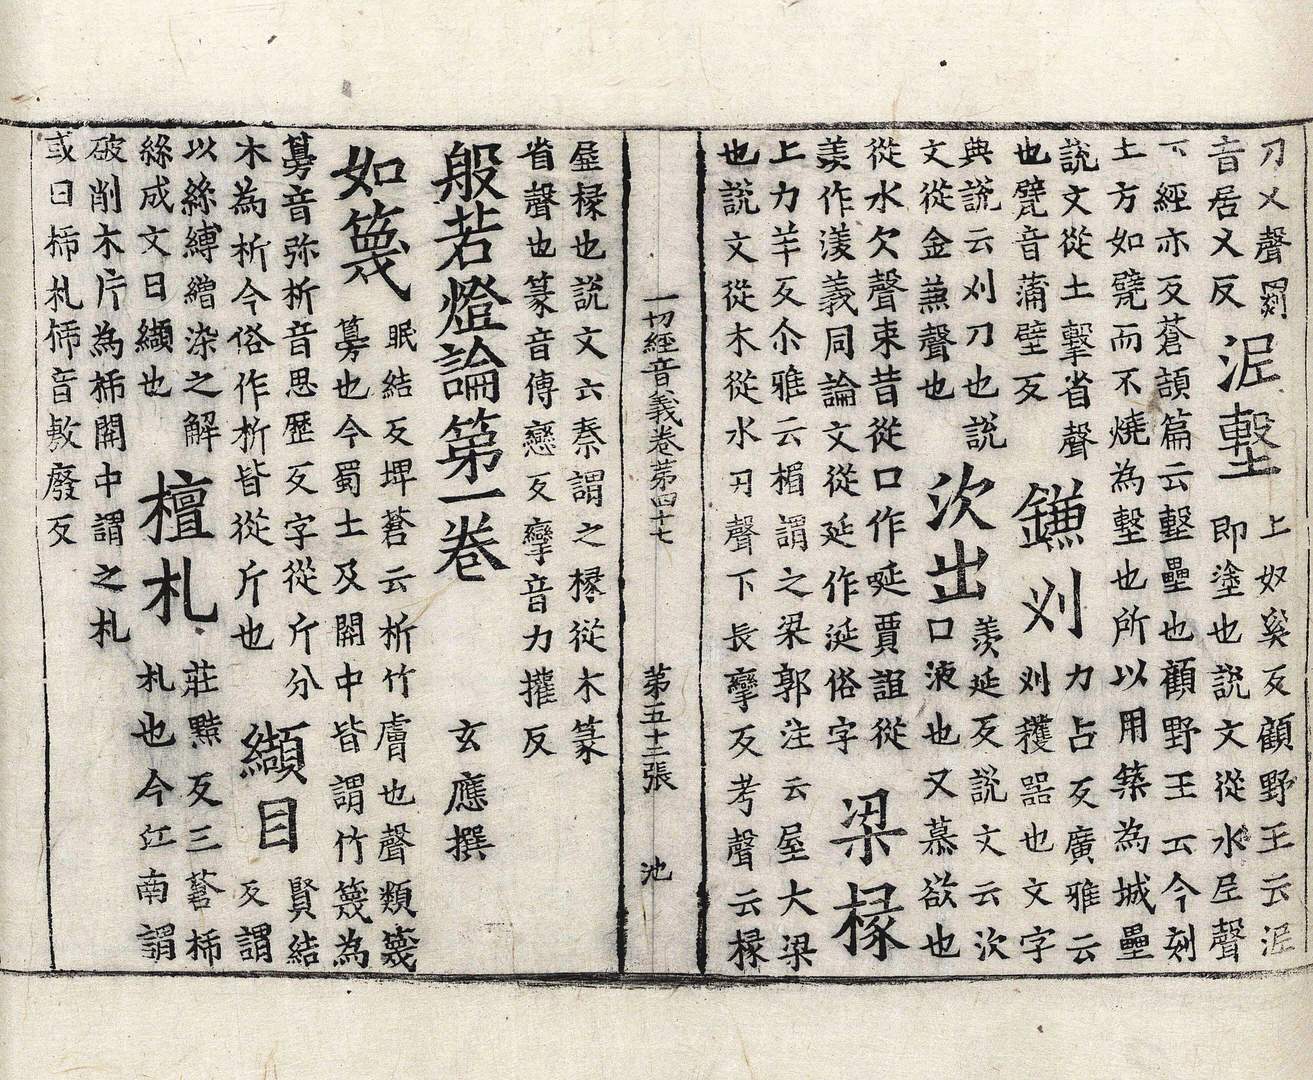 刀乂聲
音居乂反
泥墼
上奴奚反顧野王云泥
即塗也說文從水𡰥聲
下經亦反蒼頡篇云墼壘也顧野王云今刻
土方如甓而不燒為墼也所以用築為城壘
說文從土毄省聲
也甓音蒲壁反
鎌刈
力占反廣雅云
刈穫器也文字
典說云刈刀也說
文從金兼聲也
次出
羨延反說文云次
口液也又慕欲也
從水欠聲束昔從口作唌賈誼從
羨作漾義同論文從延作涎俗字
梁椽
上力羊反尒雅云楣謂之梁郭注云屋大梁
也說文從木從水刅聲下長攣反考聲云椽
一切經音義卷第四十七 第五十三張 池
屋榱也說文云秦謂之椽從木篆
省聲也篆音傳戀反攣音力攡反
般若燈論第一卷 玄應撰
如篾
眠結反埤蒼云析竹膚也聲類篾
篣也今蜀土及關中皆謂竹篾為
篣音弥析音思歷反字從斤分
木為析今俗作㭊皆從斤也
纈目
賢結
反謂
以絲縛繒染之解
絲成文曰纈也
檀札
莊黠反三蒼柿
札也今江南謂
破削木片為柿關中謂之札
或曰柿札柿音敷廢反